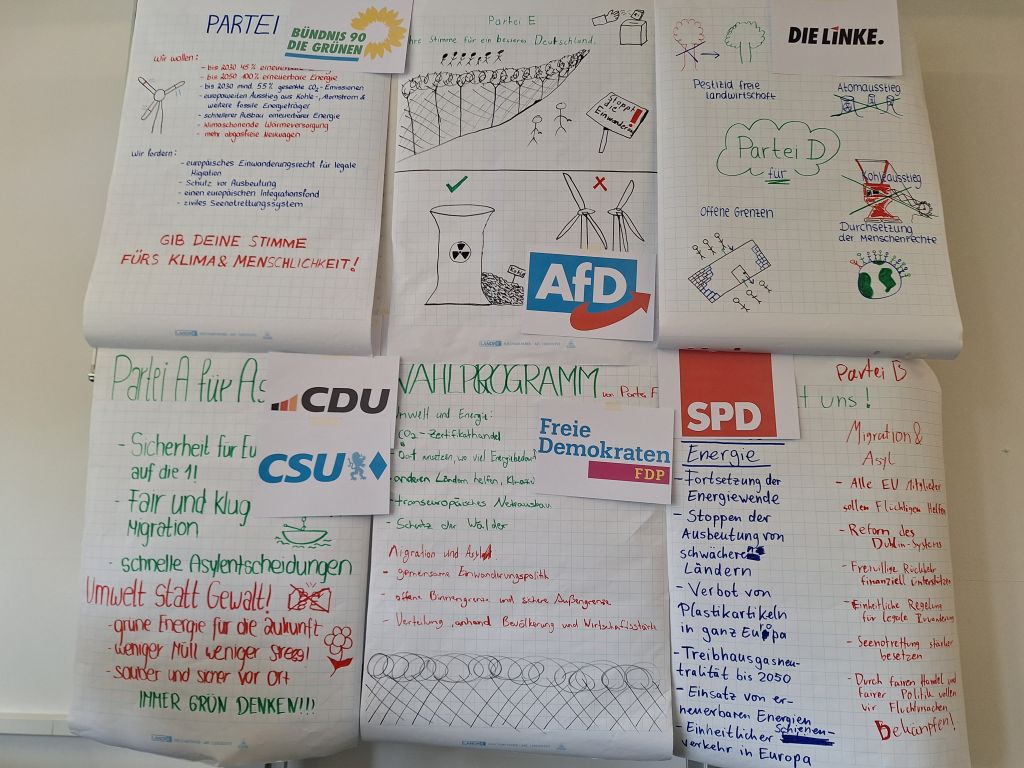 PARTEI
BÜNDNIS 90
DIE GRÜNEN
Wir wollen:
- bis 2030 45% erneuerbare
- bis 2050 100% erneuerbare Energie
- bis 2030 mind. 55% gesenkte CO₂-Emissionen
- europaweiten Ausstieg aus Kohle-, Atomstrom &
weitere fossile Energieträger
- schnellerer Ausbau erneuerbarer Energie
- klimaschonende Wärmeversorgung
- mehr abgasfreie Neuwagen
Wir fordern:
- europäisches Einwanderungsrecht für legale
Migration
- Schutz vor Ausbeutung
- einen europäischen Integrationsfond
- ziviles Seenotrettungssystem
GIB DEINE STIMME
FÜRS KLIMA & MENSCHLICHKEIT!
Partei E
Ihre Stimme für ein besseres Deutschland.
Stoppt
die
Einwander
!
Kohle
AfD
DIE LINKE.
Pestizid freie
Landwirtschaft
Atomausstieg
Partei D
für
Kohleausstieg
Offene Grenzen
Durchsetzung
der Menschenrechte
Partei A für As
CDU
CSU
- Sicherheit für Eu
auf die 1!
- Fair und klug
Migration
- schnelle Asylentscheidungen
Umwelt statt Gewalt!
- grüne Energie für die Zukunft
- weniger Müll weniger Stress!
- sauber und sicher vor Ort
IMMER GRÜN DENKEN!!!
WAHLPROGRAMM von Partei F
Freie
Demokraten
FDP
Umwelt und Energie:
CO₂-Zertifikathandel
- Dort ansetzen, wo viel Energiebedarf
- anderen Ländern helfen,
- transeuropäisches Netzausbau
- Schutz der Wälder
Migration und Asyl
- gemeinsame Einwanderungspolitik
- offene Binnengrenze und sichere Außengrenze
- Verteilung anhand Bevölkerung und Wirtschaftsstärke
SPD
Partei B
t uns!
Energie
- Fortsetzung der
Energiewende
- Stoppen der
Ausbeutung von
schwächeren
Ländern
- Verbot von
Plastikartikeln
in ganz Europa
- Treibhausgasneu-
tralität bis 2050
- Einsatz von er-
neuerbaren Energien
- Einheitlicher Schienen-
verkehr in Europa
Migration &
Asyl
- Alle EU Mitglieder
sollen Flüchtigen Helfen
- Reform des
Dublin-Systems
- Freiwillige Rückkehr
finanziell unterstützen
- Einheitliche Regelung
für legale
- Seenotrettung stärker
besetzen
- Durch fairen Handel und
fairer Politik wollen
wir Fluchtursachen
Bekämpfen!